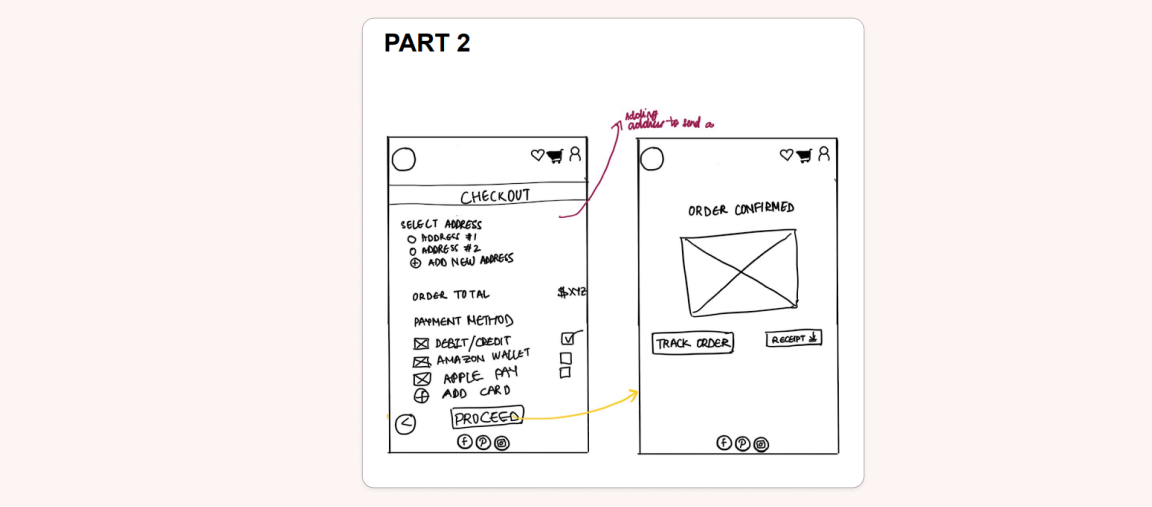 PART 2
Adding
address to send a
CHECKOUT
SELECT ADDRESS
ADDRESS #1
ADDRESS #2
ADD NEW ADDRESS
ORDER TOTAL $XYZ
PAYMENT METHOD
DEBIT/CREDIT
AMAZON WALLET
APPLE PAY
ADD CARD
<
PROCEED
f P
ORDER CONFIRMED
TRACK ORDER
RECEIPT
f P